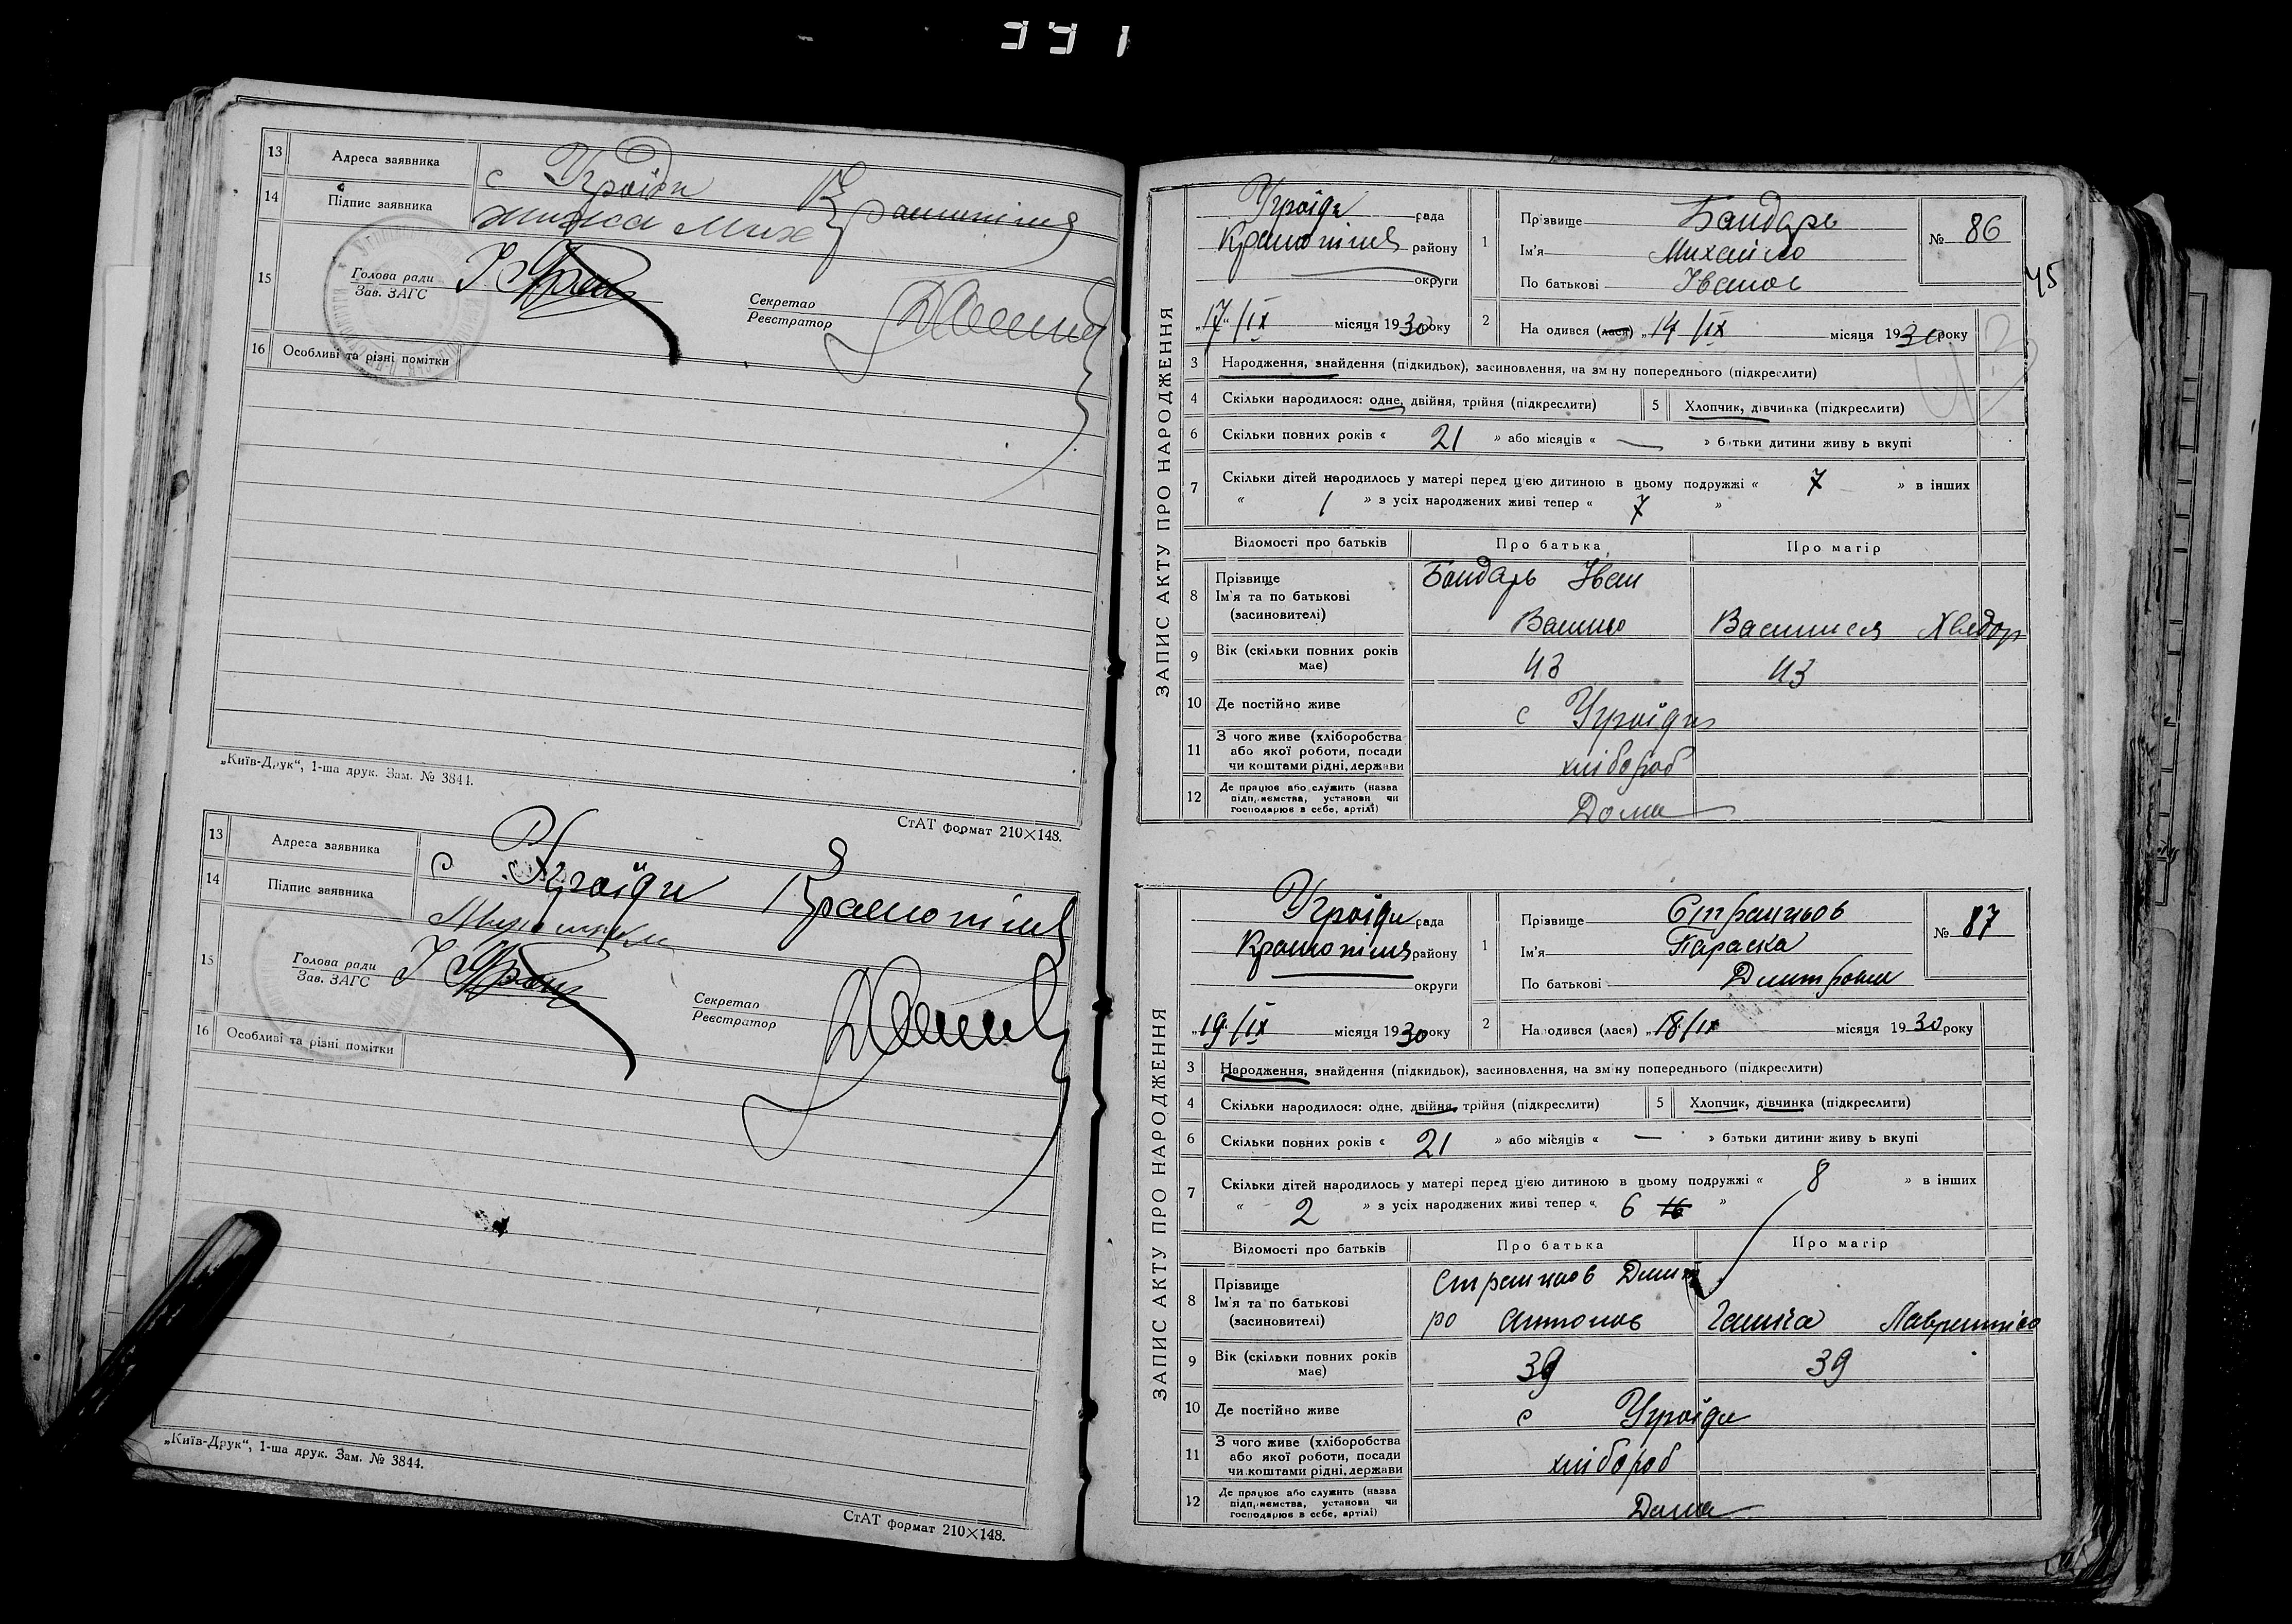 331
13 Адреса заявника с Угроїди
14 Підпис заявника Краснопілля
15 Голова ради
Зав. ЗАГС
Секретар
Реєстратор
16 Особливі та різні помітки
„Київ-Друк“, 1-ша друк. Зам. № 3844.
СтАТ формат 210×148.
13 Адреса заявника с Угроїди Краснопілля
14 Підпис заявника
15 Голова ради
Зав. ЗАГС
Секретар
Реєстратор
16 Особливі та різні помітки
„Київ-Друк“, 1-ша друк. Зам. № 3844.
СтАТ формат 210×148.
45
ЗАПИС АКТУ ПРО НАРОДЖЕННЯ
Угроїди рада
Краснопілля району
округи
„17“/IX місяця 1930 року
1 Прізвище Бондарь
Ім'я Михайло
По батькові Іванов
№ 86
2 Народився (лася) „14/IX місяця 1930 року
3 Народження, знайдення (підкидьок), засиновлення, на зміну попереднього (підкреслити)
4 Скільки народилося: одне, двійня, трійня (підкреслити) 5 Хлопчик, дівчинка (підкреслити)
6 Скільки повних років « 21 » або місяців « — » батьки дитини живуть вкупі
7 Скільки дітей народилось у матері перед цією дитиною в цьому подружжі « 7 » в інших
« 1 » з усіх народжених живі тепер « 7 »
Відомості про батьків Про батька Про матір
8 Прізвище
Ім'я та по батькові
(засиновителі)
Бондарь Іван
Василис Хведор
9 Вік (скільки повних років має) 43 43
10 Де постійно живе с Угроїди
11 З чого живе (хліборобства
або якої роботи, посади
чи коштами рідні, держави хлібороб
12 Де працює або служить (назва
підприємства, установи чи
господарює в себе, артілі) Дома
ЗАПИС АКТУ ПРО НАРОДЖЕННЯ
Угроїди рада
Краснопілля району
округи
„19/IX місяця 1930 року
1 Прізвище Страшков
Ім'я Параска
По батькові Дмитровна
№ 87
2 Народився (лася) „18/IX місяця 1930 року
3 Народження, знайдення (підкидьок), засиновлення, на зміну попереднього (підкреслити)
4 Скільки народилося: одне, двійня, трійня (підкреслити) 5 Хлопчик, дівчинка (підкреслити)
6 Скільки повних років « 21 » або місяців « — » батьки дитини живуть вкупі
7 Скільки дітей народилось у матері перед цією дитиною в цьому подружжі « 8 » в інших
« 2 » з усіх народжених живі тепер « 6 16 »
Відомості про батьків Про батька Про матір
8 Прізвище
Ім'я та по батькові
(засиновителі)
Страшков Дмит
ро Антонов Лаврентіев
9 Вік (скільки повних років має) 39 39
10 Де постійно живе с Угроїди
11 З чого живе (хліборобства
або якої роботи, посади
чи коштами рідні, держави хлібороб
12 Де працює або служить (назва
підприємства, установи чи
господарює в себе, артілі) Дома